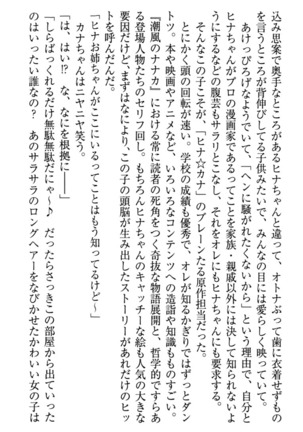 込み思案で奥手なところがあるヒナちゃんと違って、オトナぶって歯に衣着せずもの
を言うところが背伸びしてる子供みたいで、みんなの目には愛らしく映っていて。
あけっぴろげなようでいて、「ヘンに騒がれたくないから」という理由で、自分と
ヒナちゃんがプロの漫画家であることを家族・親戚以外には決して知られないよ
うにするなどの腹芸もサラリとこなし、それをオレにもヒナちゃんにも要求する。
そんなこの子こそが、「ヒナ☆カナ」のブレーンたる原作担当だった。
ひと言で頭の回転が速い。学校の成績も優秀で、オレが知るかぎりではずっとダン
トツ。本や映画やアニメなど、いろいろなコンテンツへの造詣や知識もものすごい。
『潮風のナナ』における常に読者の死角をつく奇抜な物語展開と、哲学的ですらあ
る登場人物たちのセリフ回し。もちろんヒナちゃんのキャッチーな絵も人気の大きな
要因だけど、まずはなにより、この子の頭脳が生み出したストーリーがあれだけのヒッ
「ヒナお姉ちゃんがここにいるってことはもう知ってるけど～」
カナちゃんはニヤニヤ笑う。
「は、はい!?　な、なにを根拠に――」
「しらばっくれるだけ無駄無駄だにゃ～♪　だったらさっきこの部屋から出ていった
のはいったい誰なの？　あのサラサラのロングヘアーをなびかせたかわいい女の子は